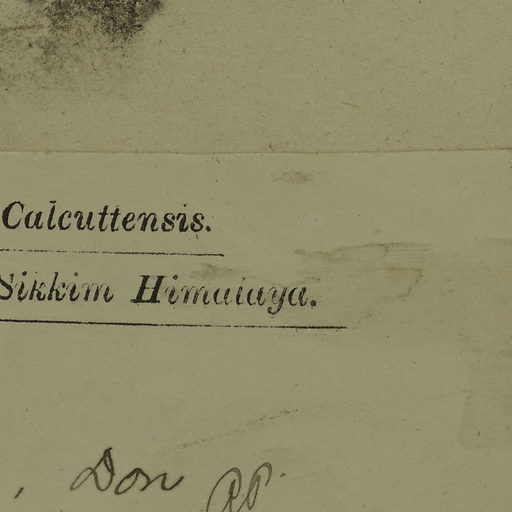 Calcuttensis.
Sikkim Himalaya.
, Don